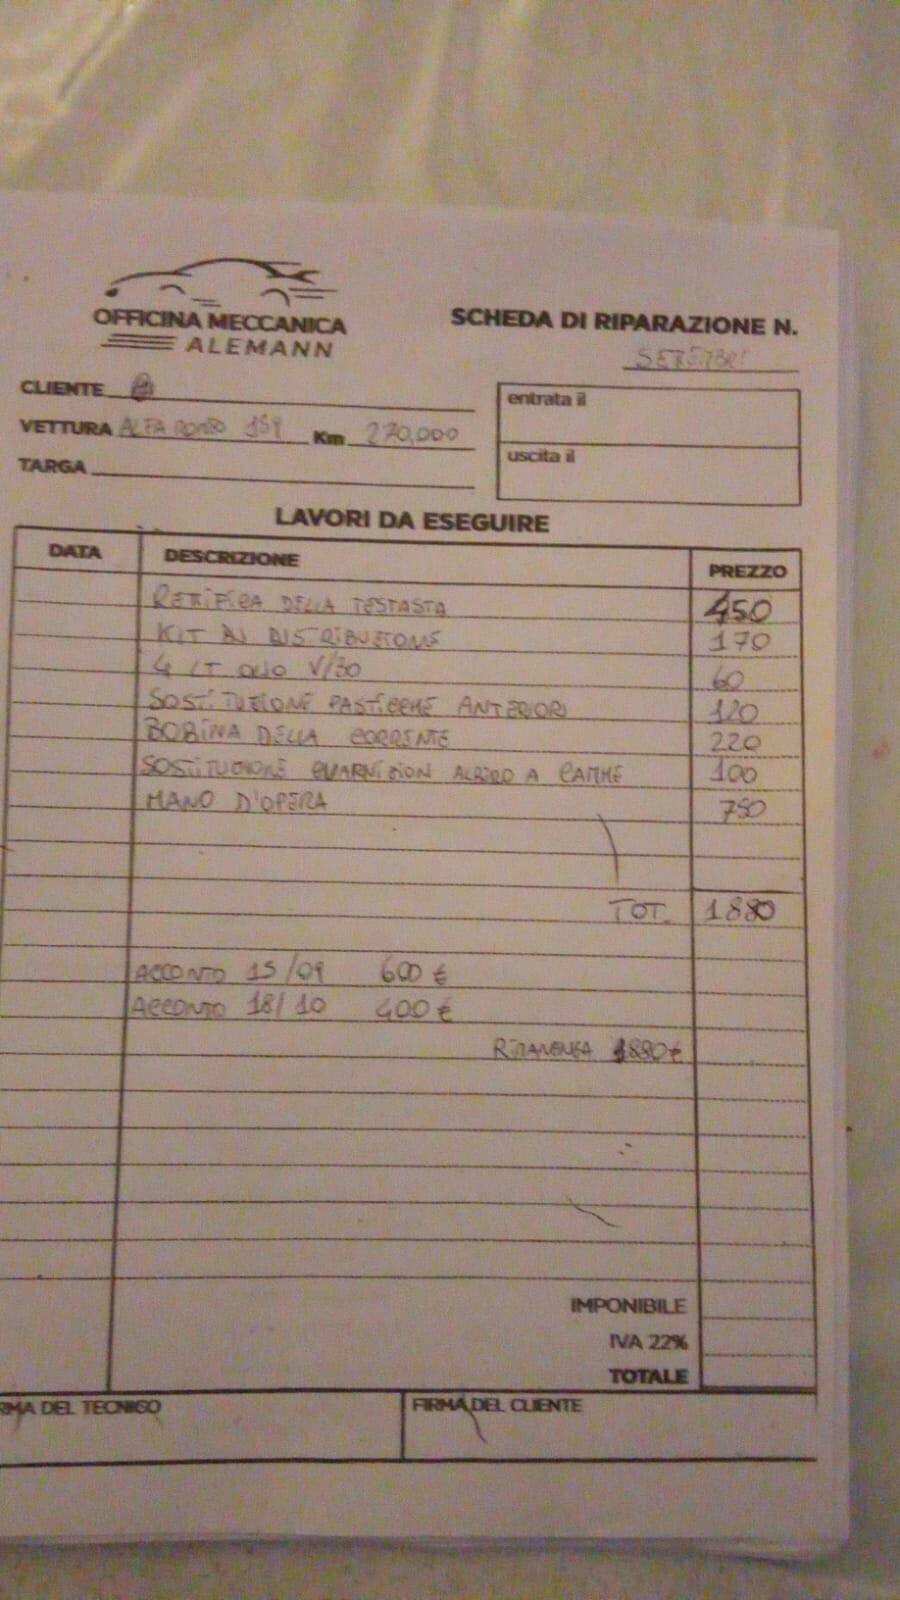 OFFICINA MECCANICA
ALEMANN
SCHEDA DI RIPARAZIONE N.
CLIENTE
entrata il
VETTURA ALFA ROMEO 159 Km 270,000
TARGA
uscita il
LAVORI DA ESEGUIRE
DATA DESCRIZIONE PREZZO
RETTIFICA DELLA TESTASTA 450
KIT DI DISTRIBUZIONE 170
4 LT OLIO V/30 60
SOSTITUZIONE PASTICCHE ANTERIORI 120
BOBINA DELLA CORRENTE 220
SOSTITUZIONE GUARNIZION ALBERO A CAMME 100
MANO D'OPERA
TOT. 1880
ACCONTO 15/09 600 €
ACCONTO 18/10 400 €
RIMANENZA
IMPONIBILE
IVA 22%
TOTALE
RMA DEL TECNICO FIRMA DEL CLIENTE